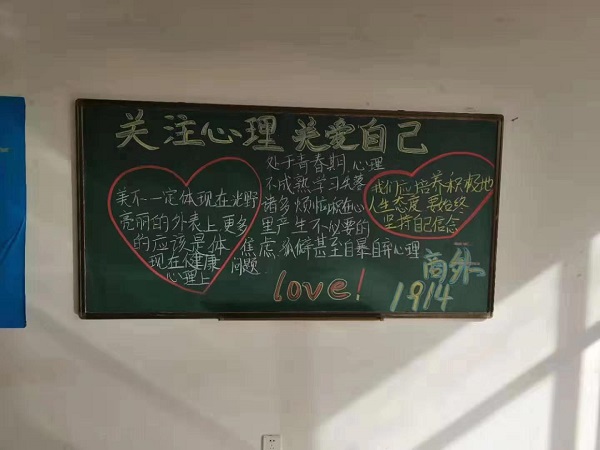 关注心理 关爱自己
美不一定体现在
亮丽的外表上,更多
的应该是体
现在健康
心理上
处于青春期,心理
不成熟学习失落
诸多烦恼积在心
里产生不必要的
焦虑.孤僻甚至自暴自弃心理
问题.
我们应培养积极地
人生态度 要始终
坚持自己信念
love!
商外
1914